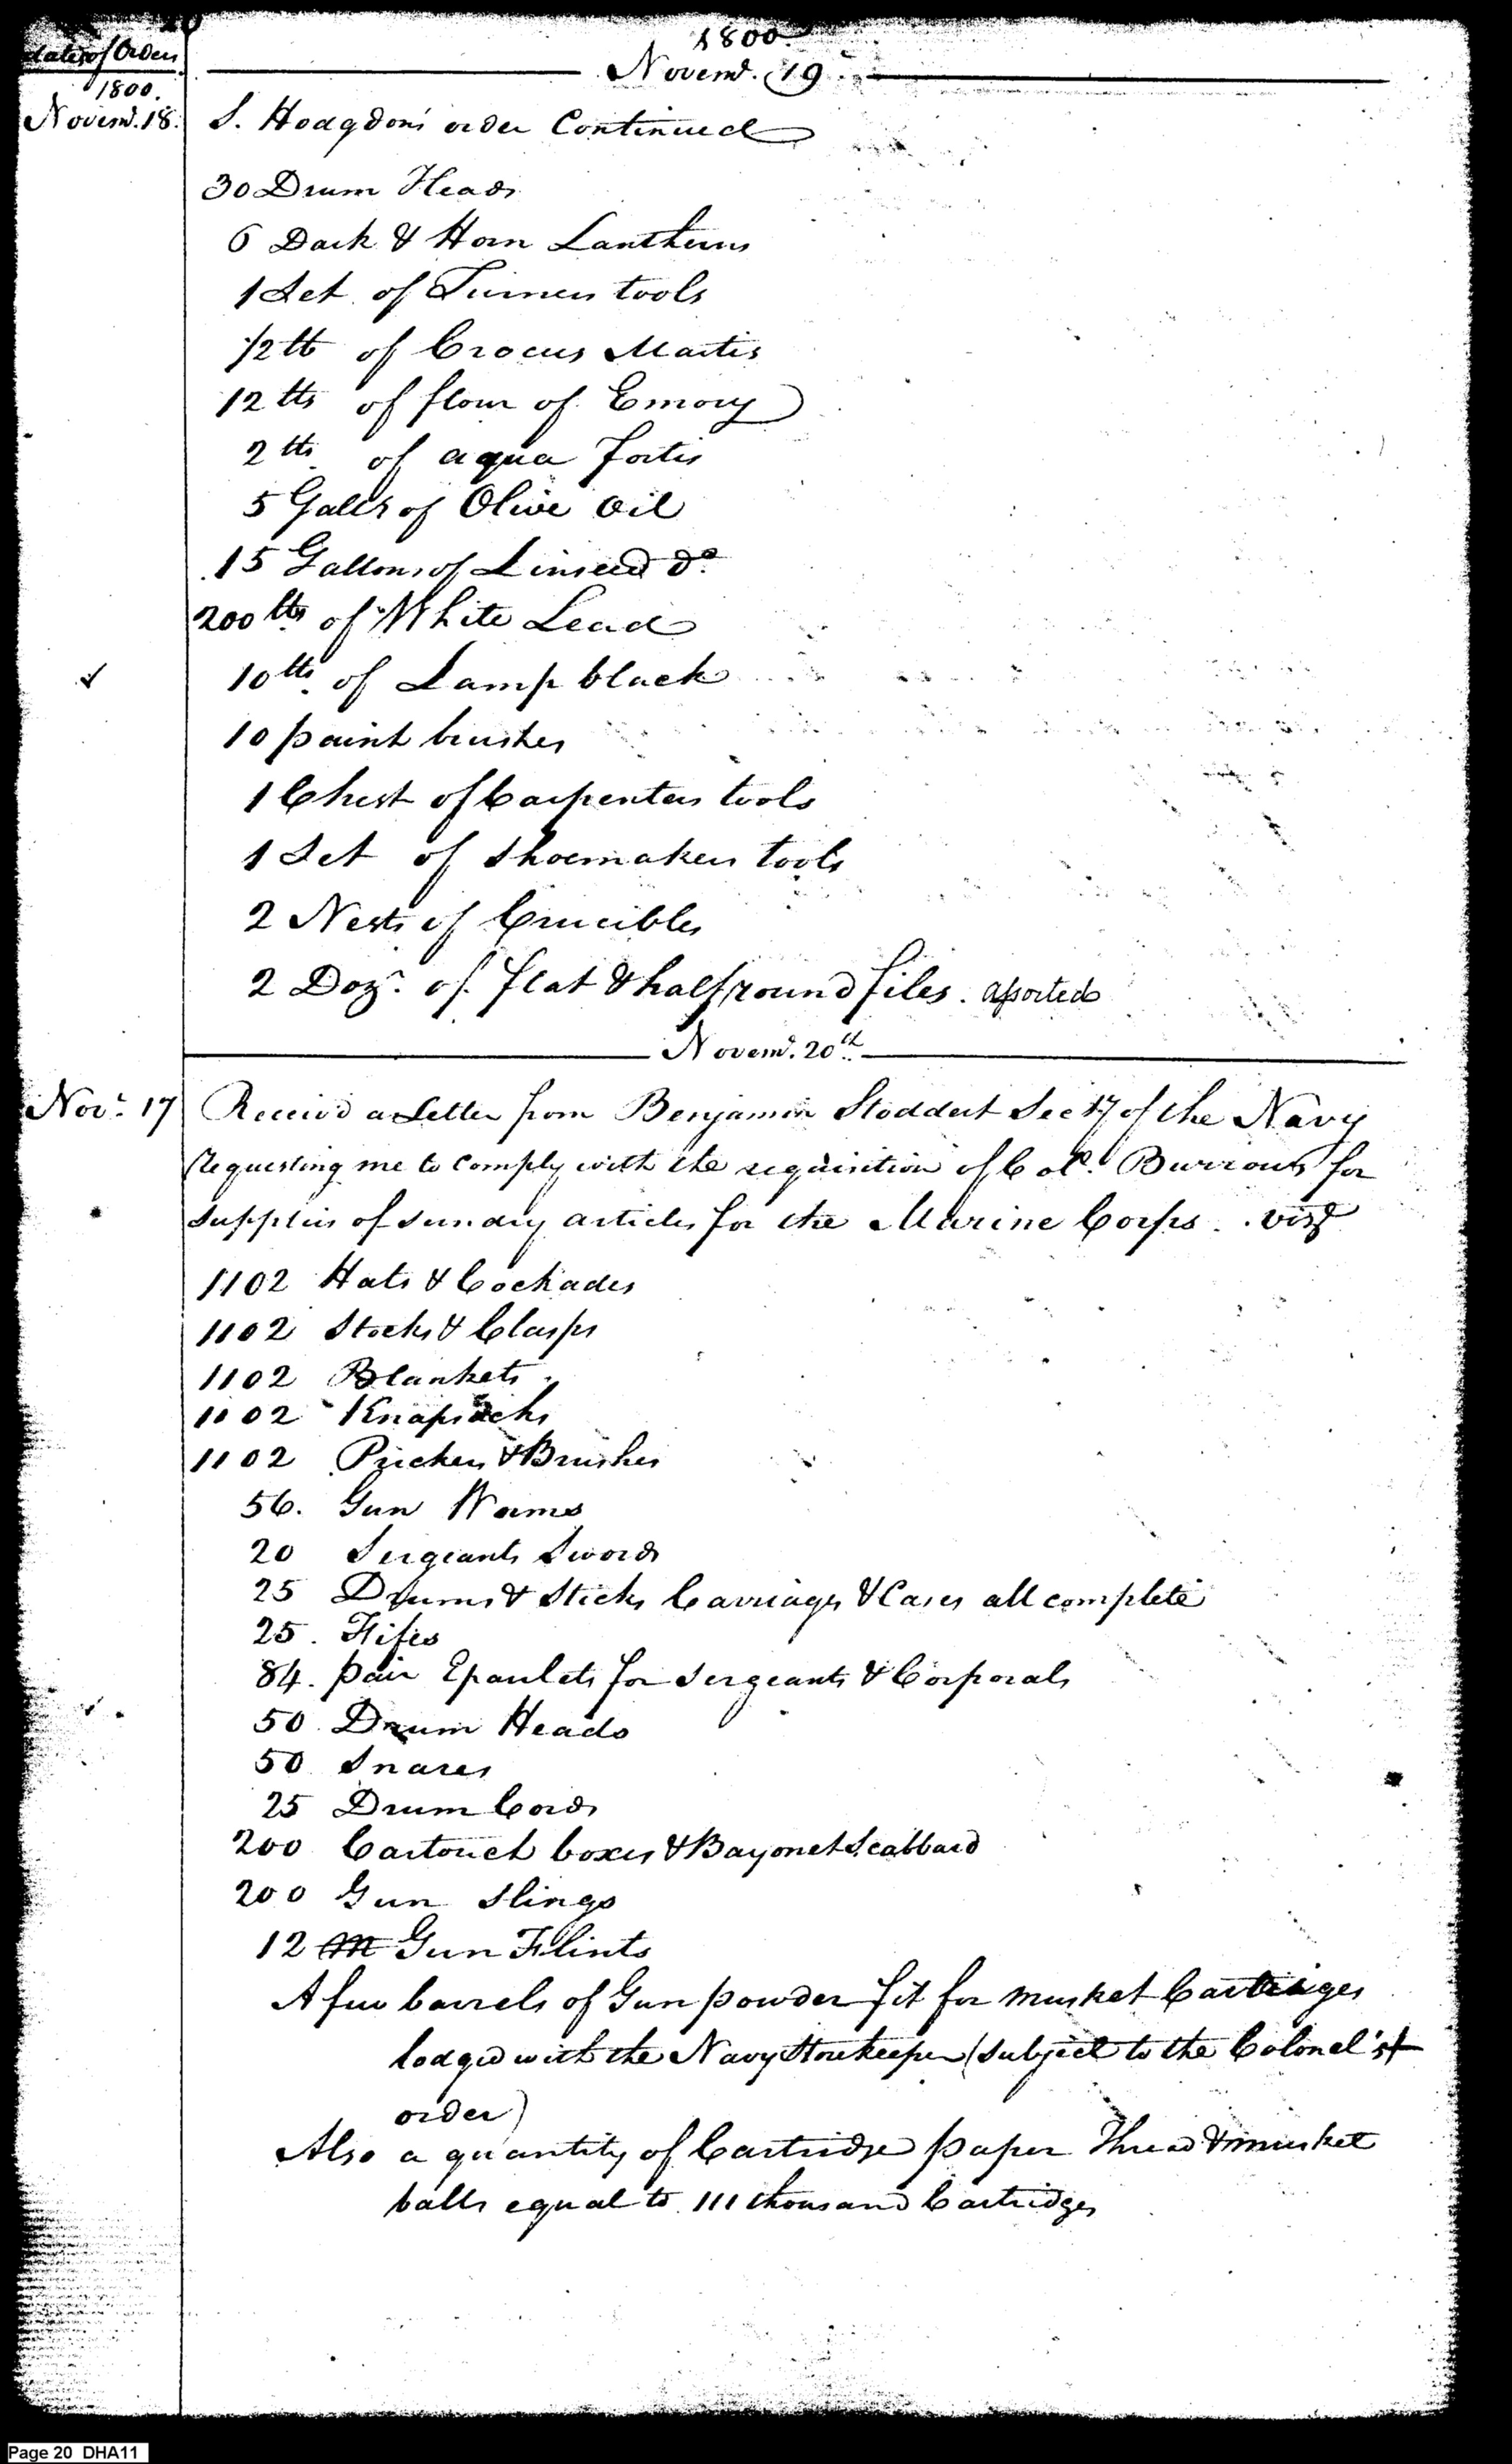 dates of Orders
1800.
Novemr. 19
1800.
Novemr. 18.
S. Hodgdon's order Continued
30 Drum Heads
6 Dark & Horn Lantherns
1 Set of Tinners tools
1/2 lb of Crocus Martis
12 lbs of flour of Emory
2 lbs of aqua fortis
5 Galls of Olive Oil
15 Gallons of Linseed do.
200 lbs of White Lead
10 lbs. of Lamp black
10 paint brushes
1 Chest of Carpenters tools
1 Set of Shoemakers tools
2 Nests of Crucibles
2 Dozn. of flat & half round files. assorted
Novemr. 20th.
Novr. 17
Receiv'd a Letter from Benjamin Stoddert Secty of the Navy
requesting me to comply with the requisition of Col. Burrows for
Supplies of sundry articles for the Marine Corps.. vizt
1102 Hats & Cockades
1102 Stocks & Clasps
1102 Blankets.
1102 Knapsacks
1102 Prickers & Brushes
56. Gun Worms
20 Sergeants Swords
25 Drums & Sticks Carriages & Cases all complete
25. Fifes
84. pair Epaulets for Sergeants & Corporals
50 Drum Heads
50 Snares
25 Drum Cords
200 Cartouch boxes & Bayonet Scabbard
200 Gun Slings
12 M Gun Flints
A few barrels of Gun powder fit for musket Cartriages
lodged with the Navy Storekeeper (subject to the Colonel's
order)
Also a quantity of Cartridge paper Thread & musket
balls equal to 111 thousand Cartridges
Page 20 DHA11